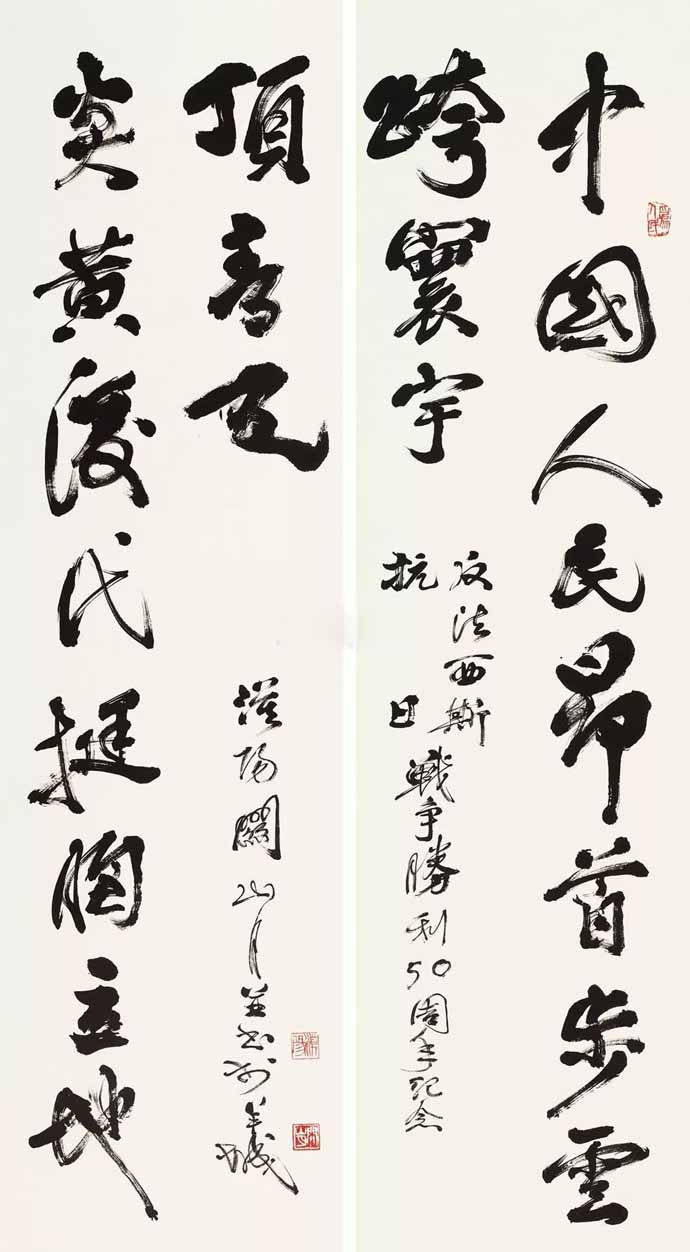 中國人民昂首步雲
跨寰宇
反法西斯
抗日
戰爭勝利50周年紀念
炎黃後代挺胸立地
頂青天
漠陽關山月並書於羊城